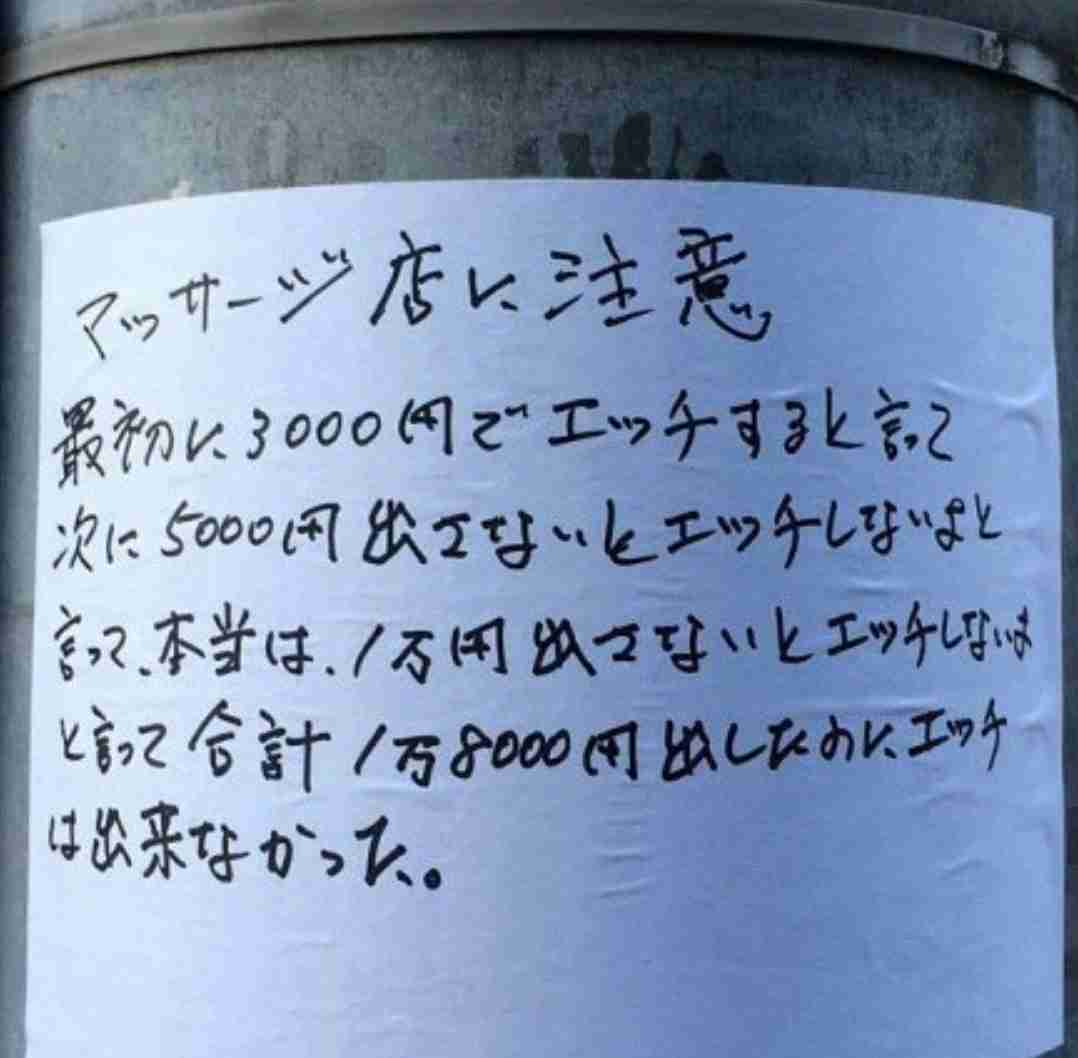 マッサージ店に注意
最初に3000円でエッチすると言って
次に5000円出さないとエッチしないよと
言って、本当は、1万円出さないとエッチしないよ
と言って合計1万8000円出したのに、エッチ
は出来なかった。